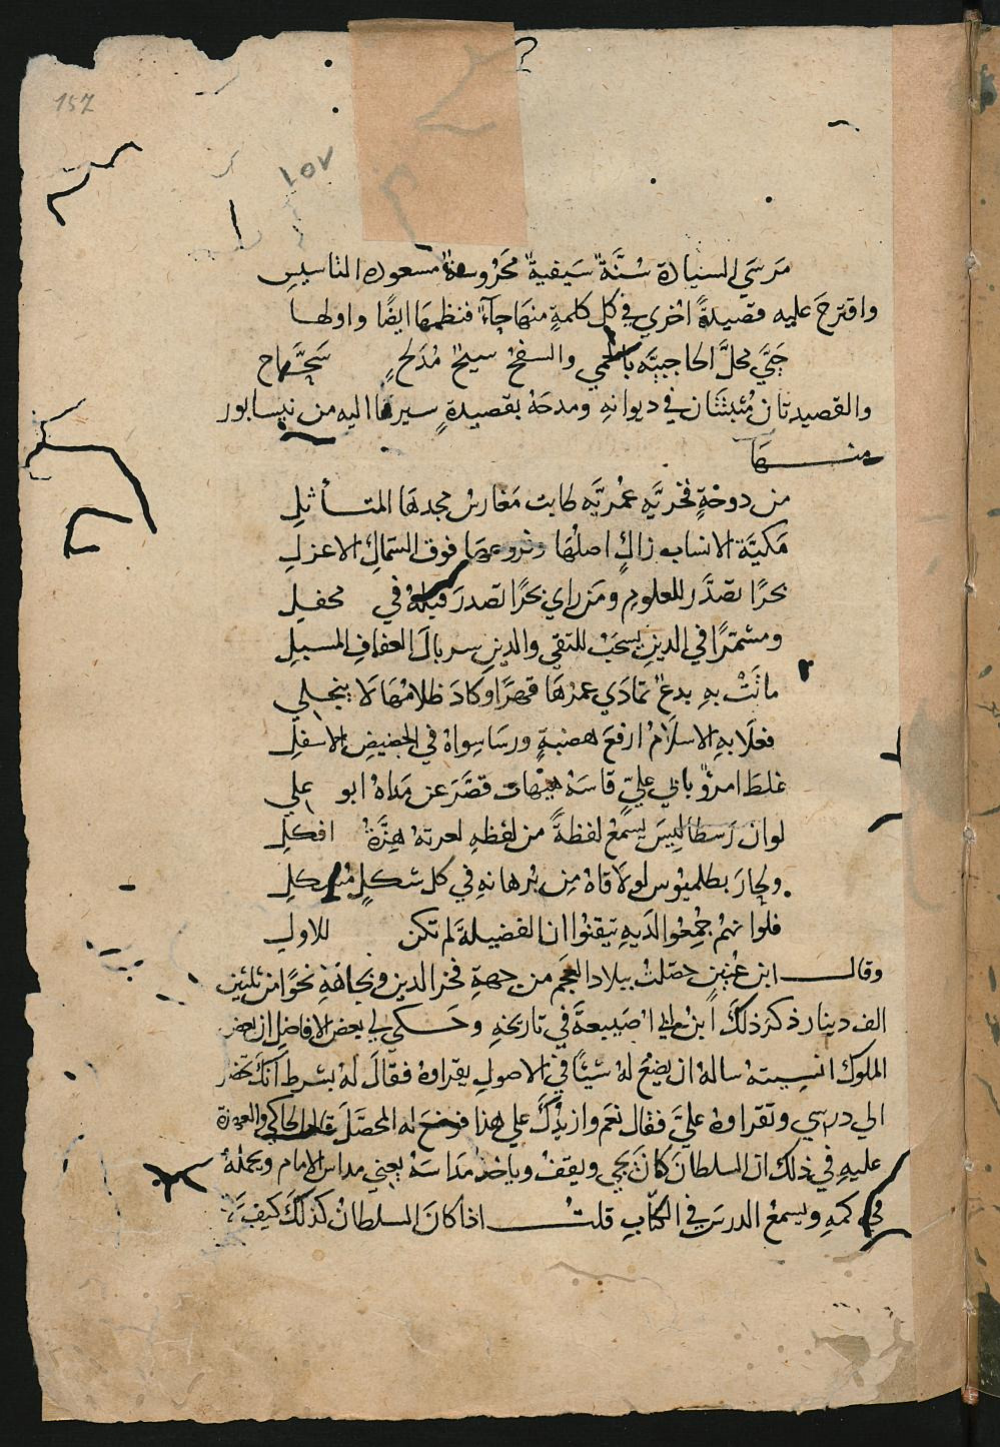 157
١٥٧
مَرسَي السيادة سُنَّةٌ سَيفيةٌ محَرُوسةٌ مسعودة التاسيسِ
واقترحَ عليه قصيدةً اخري في كل كلمةٍ منهَا حآءٌ فنظمهَا ايضًا واولهــا
حَيِّ محلَّ الحاجبيَّه بالحمي والسفحُ سيحُ مُدَلحٍ سَحَّاح
والقصيدتان مُثبتتَان في ديوانهِ ومدحَهُ بقصيدةٍ سيرهَا اليه من نيسابور
منـــهَا
من دوحَةٍ فخريَّهٍ عمُريَّه طابت مَغارسُ مجدهَا المتـاثلِ
مَكيَّة الانساب زاكٍ اصلهَا وفروعهَا فوق السّماكِ الاعزلِ
بحرًا تصَدَّر للعلومِ ومَن راي بحرًا تصدرَ قبلهُ في محفلِ
ومشمّرًا في الدينِ يسحَبُ للتقي والدينِ سربالَ العفافِ المسبلِ
ماتَتْ بهِ بدعٌ تمادَي عمرهَا قهرًا وكادَ ظلامُهَا لا ينجلي
فعلَا بهِ الاسلَامُ ارفعَ هضبةٍ ورسَا سواهُ في الحضيضِ الاسفلِ
غلطَ امرؤٌ بابي عليٍّ قاسَهُ هيهَات قصَّرَ عن مَداهُ ابو علي
لوان رَسطاليسَ يسمعُ لفظةً من لفظهِ لعرتهُ هِزَّةُ افكلِ
ولحارَ بطلميوس لو لاقاهُ مِن بُرهانهِ في كل شكلٍ مُشكلِ
فلوا نهُم جُمِعُوا لدَيهِ تيقنُوا ان الفضيلةَ لم تكن للاولِ
وقالــ ابن عُنينٍ حصّلتُ ببلاد العجَم من جهةِ فخر الدين وبجاهِهِ نحوًا من ثلثين
الف دينار ذكرَ ذلكَ ابن ابي اصَيبعةَ في تاريخهِ وحــكي لي بعض الافاضلِ ان بعض
الملوك انسيته ساله ان يضعَ لهُ شيئًا في الاصولِ يقراوهُ فقالَ لهُ بشرطِ انكَ تحضر
الي درسي وتقراوهُ عليَّ فقال نعَم وازيدُكَ علي هذا فوضعَ له المحصَّلَ قال الحاكي والعهدة
عليهِ في ذلك ان السلطانَ كانَ يجي ويقفُ وياخذُ مَداسَهُ يعني مداس الامام ويجعلهُ
في كمهِ ويسمعُ الدرسَ في الكتابِ قلتُــ اذا كانَ السلطانُ كذلكَ كيفَ لا